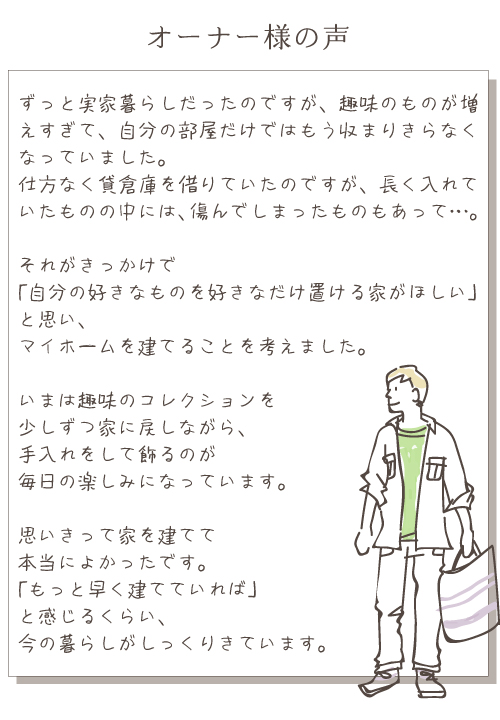 オーナー様の声
ずっと実家暮らしだったのですが、趣味のものが増
えすぎて、自分の部屋だけではもう収まりきらなく
なっていました。
仕方なく貸倉庫を借りていたのですが、長く入れて
いたものの中には、傷んでしまったものもあって…。
それがきっかけで
「自分の好きなものを好きなだけ置ける家がほしい」
と思い、
マイホームを建てることを考えました。
いまは趣味のコレクションを
少しずつ家に戻しながら、
手入れをして飾るのが
毎日の楽しみになっています。
思いきって家を建てて
本当によかったです。
「もっと早く建てていれば」
と感じるくらい、
今の暮らしがしっくりきています。